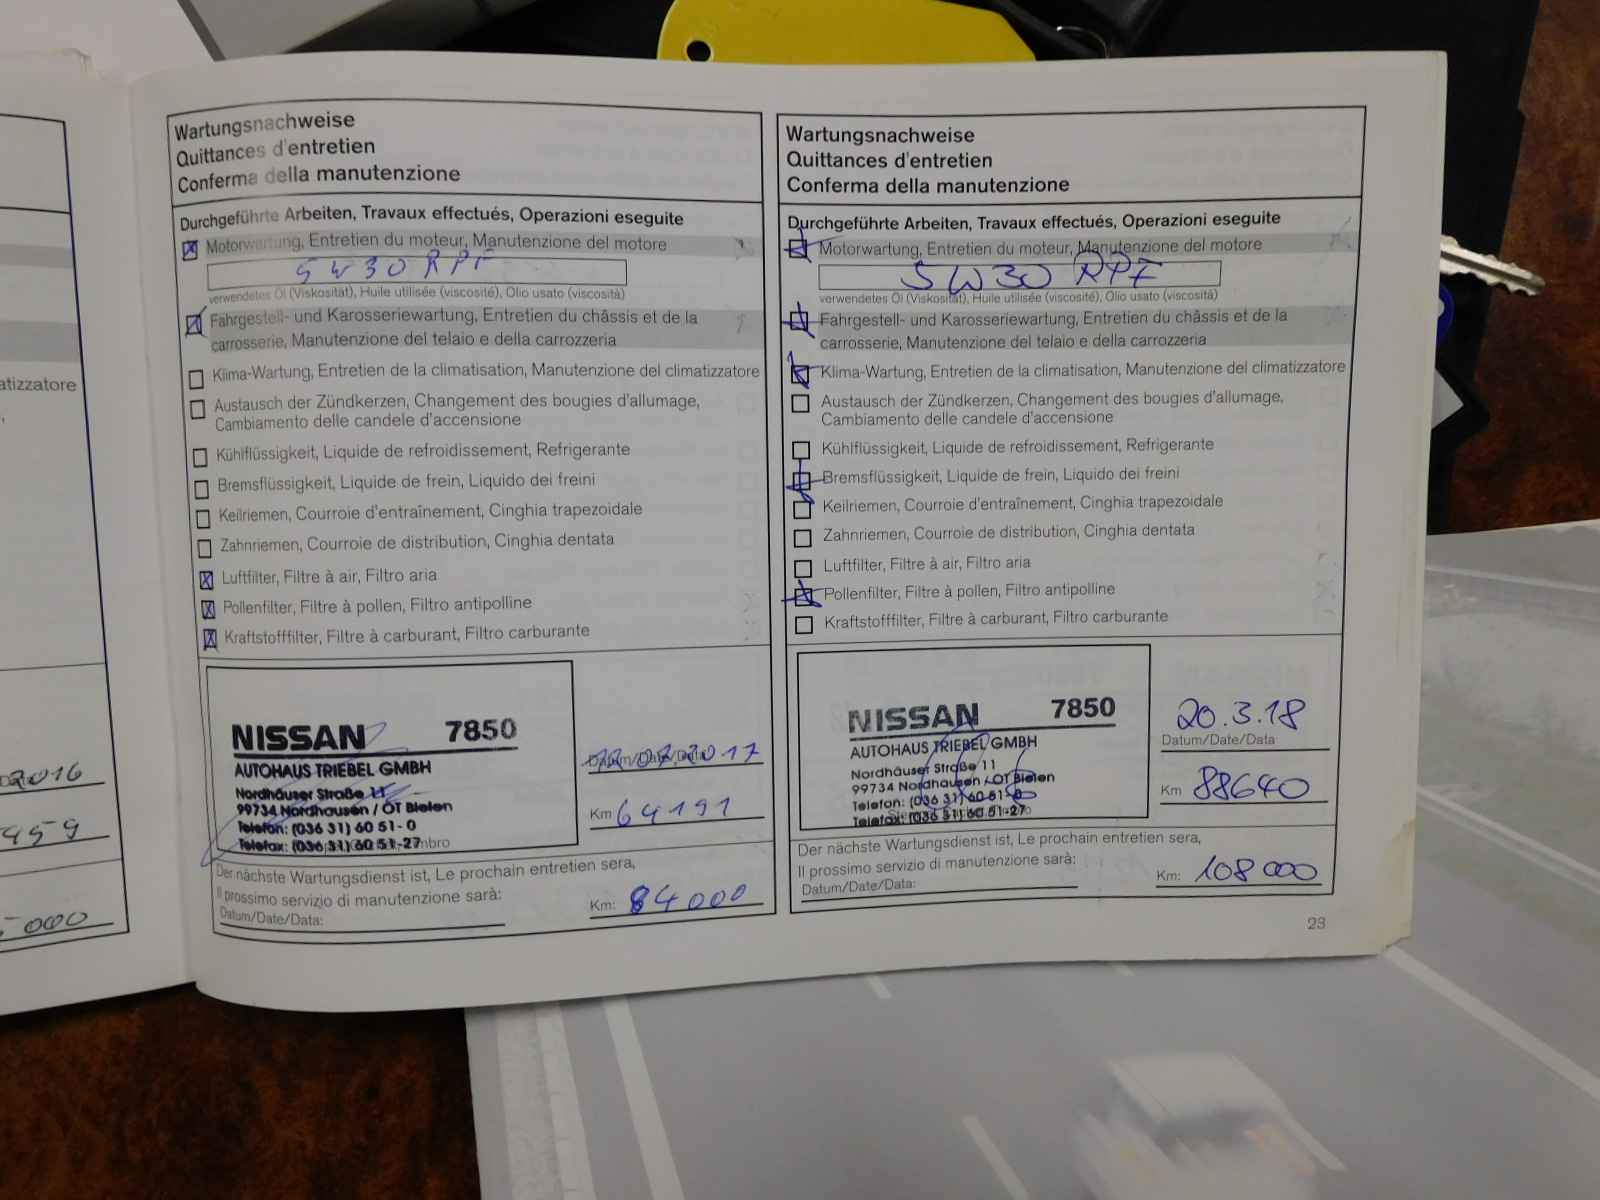 atizzatore
2016
959
000
Wartungsnachweise
Quittances d'entretien
Conferma della manutenzione
Durchgeführte Arbeiten, Travaux effectués, Operazioni eseguite
Motorwartung, Entretien du moteur, Manutenzione del motore
5W30 RPF
verwendetes Öl (Viskosität), Huile utilisée (viscosité), Olio usato (viscosità)
Fahrgestell- und Karosseriewartung, Entretien du châssis et de la
carrosserie, Manutenzione del telaio e della carrozzeria
Klima-Wartung, Entretien de la climatisation, Manutenzione del climatizzatore
Austausch der Zündkerzen, Changement des bougies d'allumage,
Cambiamento delle candele d'accensione
Kühlflüssigkeit, Liquide de refroidissement, Refrigerante
Bremsflüssigkeit, Liquide de frein, Liquido dei freini
Keilriemen, Courroie d'entraînement, Cinghia trapezoidale
Zahnriemen, Courroie de distribution, Cinghia dentata
Luftfilter, Filtre à air, Filtro aria
Pollenfilter, Filtre à pollen, Filtro antipolline
Kraftstofffilter, Filtre à carburant, Filtro carburante
NISSAN 7850
AUTOHAUS TRIEBEL GMBH
Nordhäuser Straße 11
99734 Nordhausen / OT Bielen
Telefon: (036 31) 60 51 - 0
Telefax: (036 31) 60 51-27
2017
Km 64191
Der nächste Wartungsdienst ist, Le prochain entretien sera,
Il prossimo servizio di manutenzione sarà:
Datum/Date/Data:
Km: 84000
Wartungsnachweise
Quittances d'entretien
Conferma della manutenzione
Durchgeführte Arbeiten, Travaux effectués, Operazioni eseguite
Motorwartung, Entretien du moteur, Manutenzione del motore
5W30 RPF
verwendetes Öl (Viskosität), Huile utilisée (viscosité), Olio usato (viscosità)
Fahrgestell- und Karosseriewartung, Entretien du châssis et de la
carrosserie, Manutenzione del telaio e della carrozzeria
Klima-Wartung, Entretien de la climatisation, Manutenzione del climatizzatore
Austausch der Zündkerzen, Changement des bougies d'allumage,
Cambiamento delle candele d'accensione
Kühlflüssigkeit, Liquide de refroidissement, Refrigerante
Bremsflüssigkeit, Liquide de frein, Liquido dei freini
Keilriemen, Courroie d'entraînement, Cinghia trapezoidale
Zahnriemen, Courroie de distribution, Cinghia dentata
Luftfilter, Filtre à air, Filtro aria
Pollenfilter, Filtre à pollen, Filtro antipolline
Kraftstofffilter, Filtre à carburant, Filtro carburante
NISSAN 7850
AUTOHAUS TRIEBEL GMBH
Nordhäuser Straße 11
99734 Nordhausen / OT Bielen
Telefon: (036 31) 60 51-0
Telefax: (036 31) 60 51-27
20.3.18
Datum/Date/Data
Km 88640
Der nächste Wartungsdienst ist, Le prochain entretien sera,
Il prossimo servizio di manutenzione sarà:
Datum/Date/Data:
Km: 108000
23